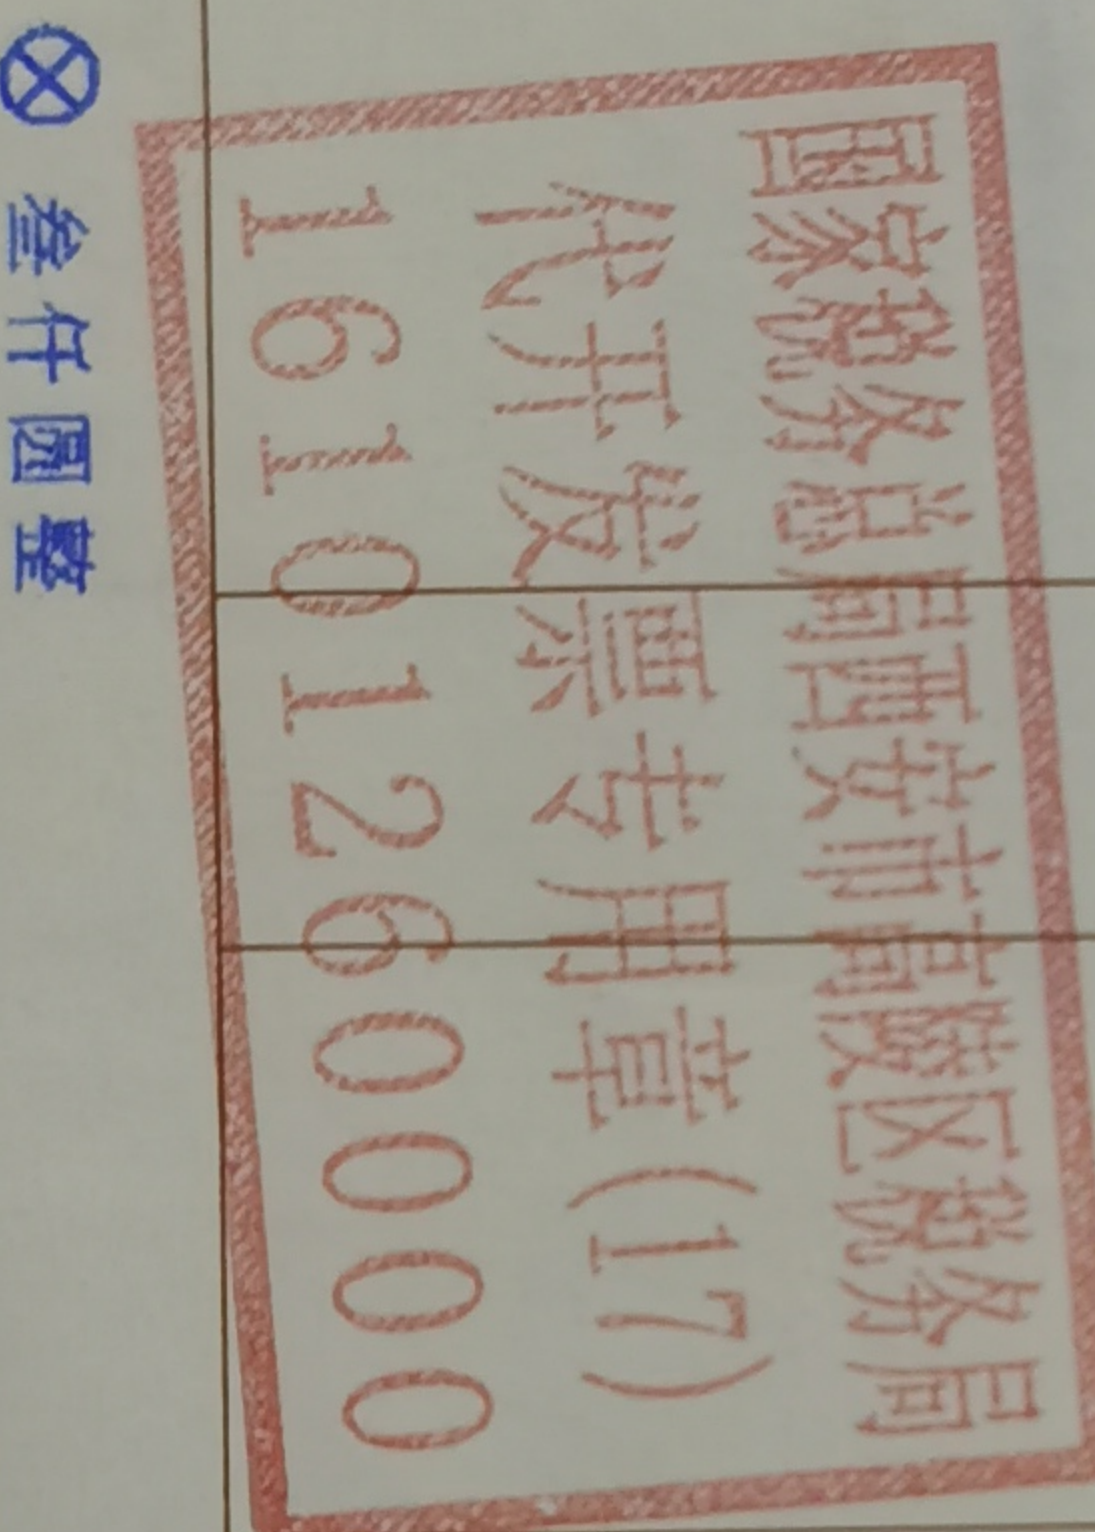 国家税务总局西安市高陵区税务局
代开发票专用章(17)
16101260000
⊗ 叁仟圆整